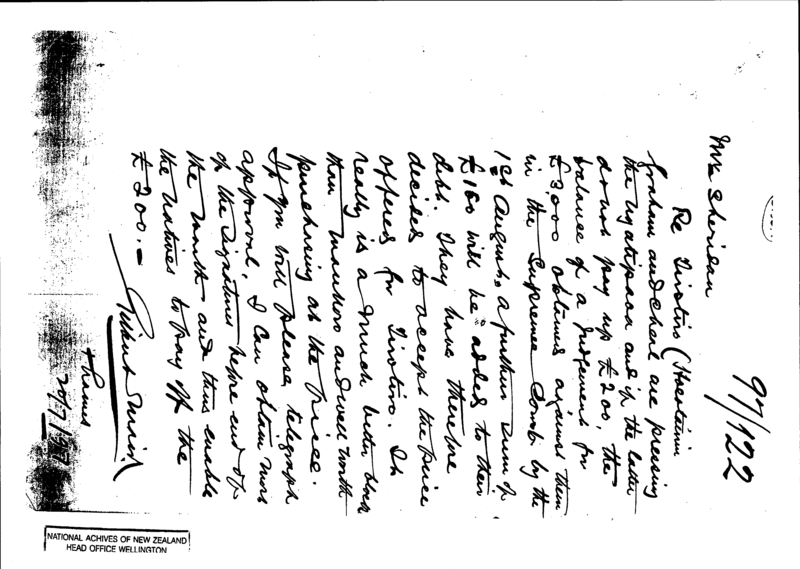 97/122
Mr Sheridan
Re Tirotiro (Hkataina
Graham and Sherd are pressing
the Ngatipaoa and if the latter
do not pay up £200, the
balance of a judgement for
£3,000 obtained against them
in the Supreme Court by the
1st August, a further sum of
£160 will be added to their
debt. They have therefore
decided to accept the price
offered for Tirotiro. It
really is a much better block
than and well worth
purchasing at the price.
If you will please telegraph
approval, I can obtain most
of the signatures before end of
the month and thus enable
the natives to pay off the
£200.-
Gilbert Mair
Thames
20/7/97
NATIONAL ACHIVES OF NEW ZEALAND
HEAD OFFICE WELLINGTON